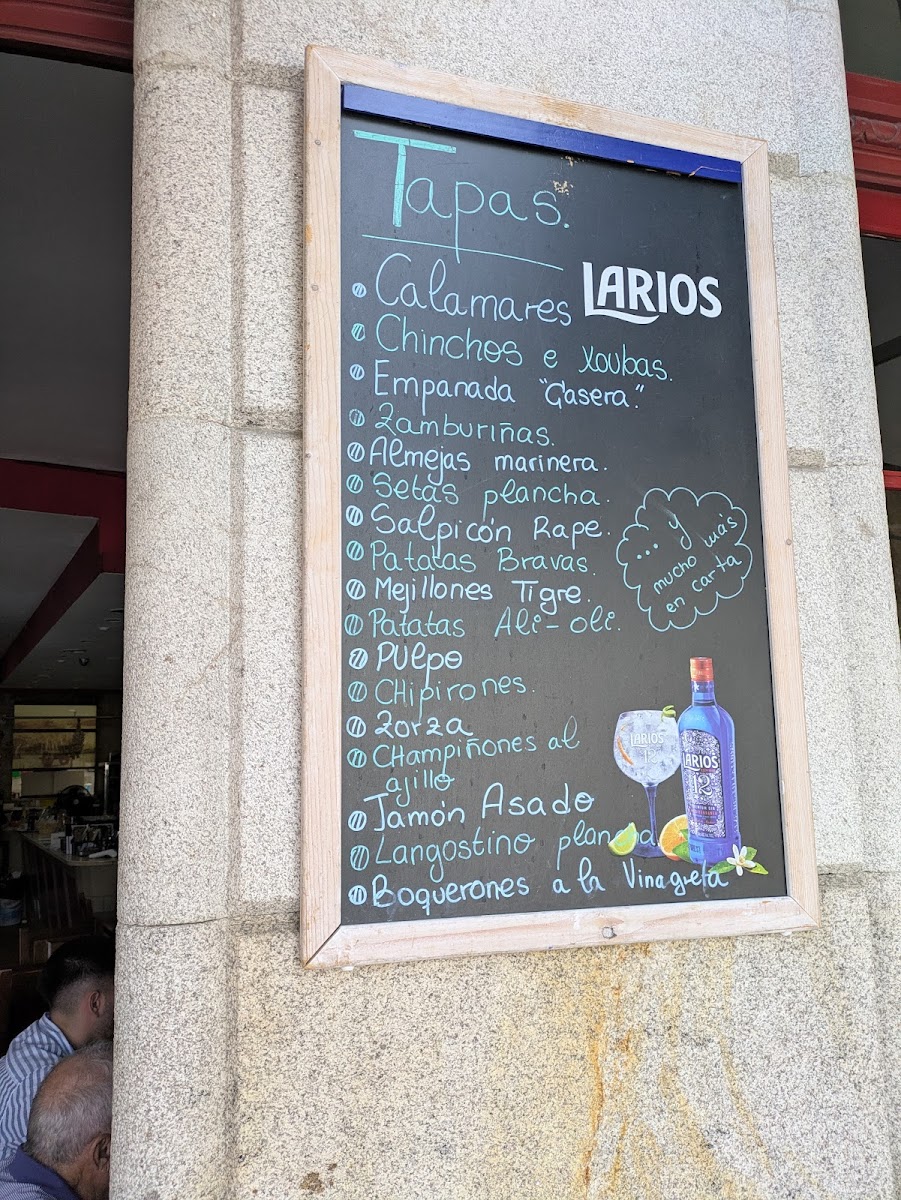 Tapas.
Calamares
LARIOS
Chinchos e Xoubas.
Empanada "Gasera".
Zamburiñas.
Almejas marinera.
Setas plancha.
Salpicón Rape.
Patatas Bravas.
Mejillones Tigre.
Patatas Ali-oli.
Pulpo
CHipirones.
Zorza
CHampiñones al
ajillo
Jamón Asado
Langostino plancha
Boquerones a la Vinagreta
... y
mucho más
en carta
LARIOS
12
LARIOS
12